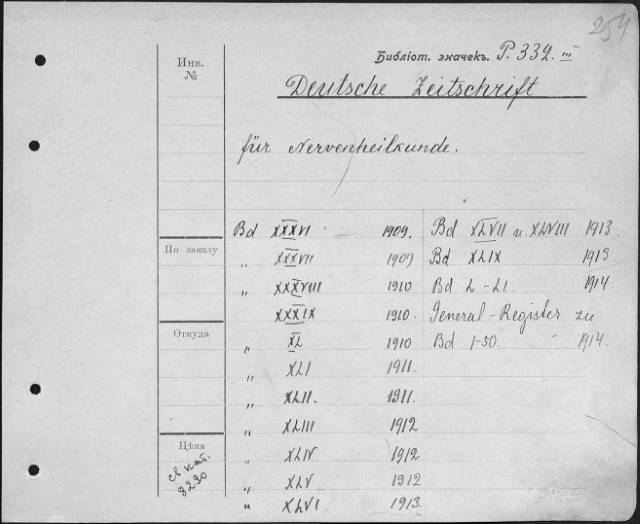 254
Инв.
№
Библіот. значекъ. P. 332. III
Deutsche Zeitschrift
für Nervenheilkunde.
Bd XXXVI 1909.
„ XXXVII 1909
„ XXXVIII 1910
XXXIX 1910.
„ XL 1910
„ XLI 1911.
„ XLII. 1911.
„ XLIII 1912
„ XLIV 1912
„ XLV 1912
„ XLVI 1913.
Bd XLVII u. XLVIII 1913.
Bd XLIX 1913.
Bd L-LI. 1914.
General-Register zu
Bd 1-50. 1914.
По заказу
Откуда
Цѣна
св. кат.
8290